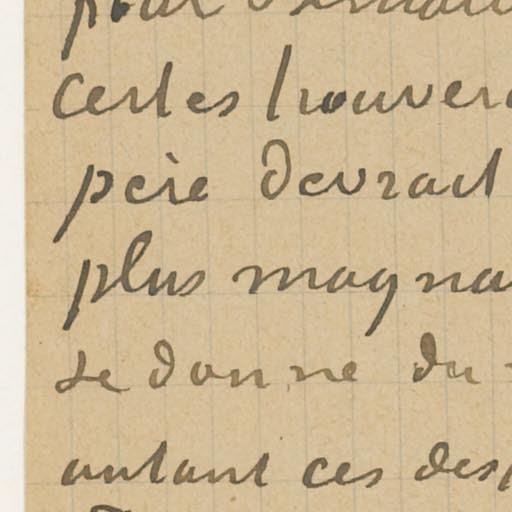 pour
certes trouver
père devrait
plus magna
se donne du
autant ces des